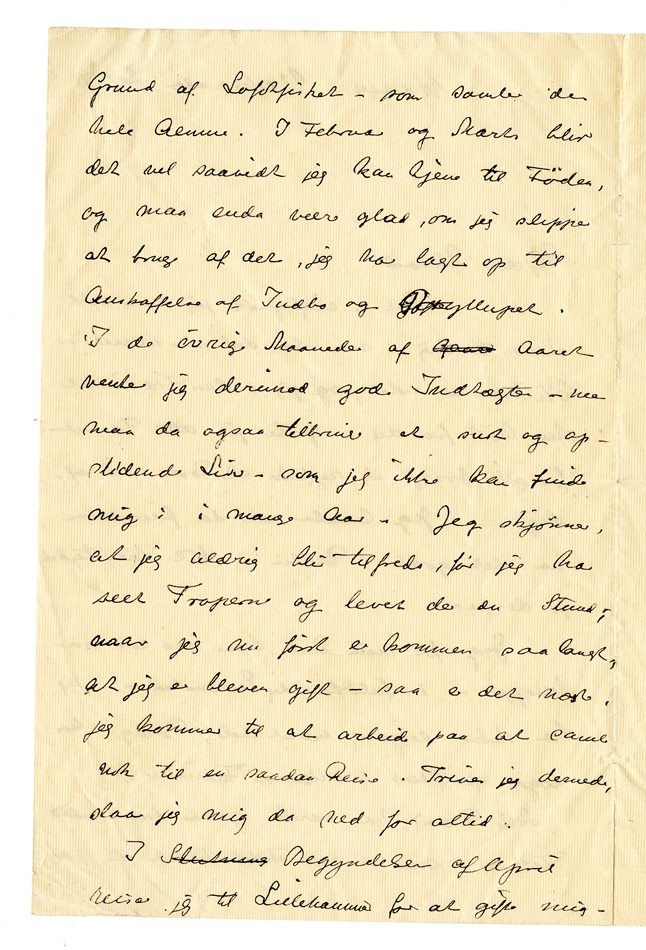 Grund af Lofotfisket – som samler den
hele Aemne. I Februar og Marts blir
det vel saavidt jeg kan tjene til Föden,
og maa enda være glad, om jeg slipper
at bruge af det, jeg har lagt op til
Anskaffelse af Indbo og Bryllupet.
I de övrige Maaneder af Aaret
venter jeg derimod gode Indtægter – men
maa da ogsaa tilbringe et surt og op-
slidende Liv – som jeg ikke kan finde
mig i i mange Aar. – Jeg skjönner,
at jeg aldrig blir tilfreds, för jeg har
seet Troperne og levet der en Stund;
naar jeg nu först er kommen saa langt,
at jeg er bleven gift – saa er det næste,
jeg kommer til at arbeide paa at samle
nok til en saadan Reise. Trives jeg dernede,
slaar jeg mig da ned for altid.
I Slutning Begyndelsen af April
reiser jeg til Lillehammer for at gifte mig –